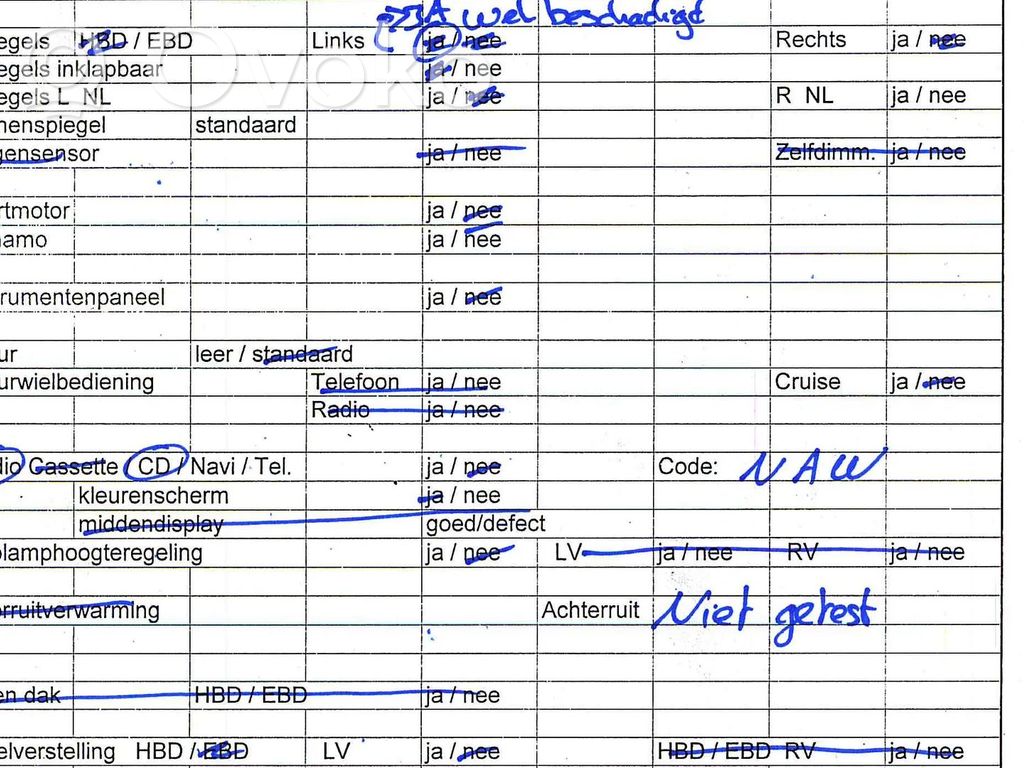 JA wel beschadigd
egels HBD / EBD Links ja / nee Rechts ja / nee
egels inklapbaar ja / nee
egels L NL ja / nee R NL ja / nee
nenspiegel standaard
gensensor ja / nee Zelfdimm. ja / nee
rtmotor ja / nee
namo ja / nee
rumentenpaneel ja / nee
ur leer / standaard
urwielbediening Telefoon ja / nee Cruise ja / nee
Radio ja / nee
dio Cassette / CD / Navi / Tel. ja / nee Code: NAW
kleurenscherm ja / nee
middendisplay goed/defect
lamphoogteregeling ja / nee LV ja / nee RV ja / nee
rruitverwarming Achterruit Niet getest
en dak HBD / EBD ja / nee
elverstelling HBD / EBD LV ja / nee HBD / EBD RV ja / nee